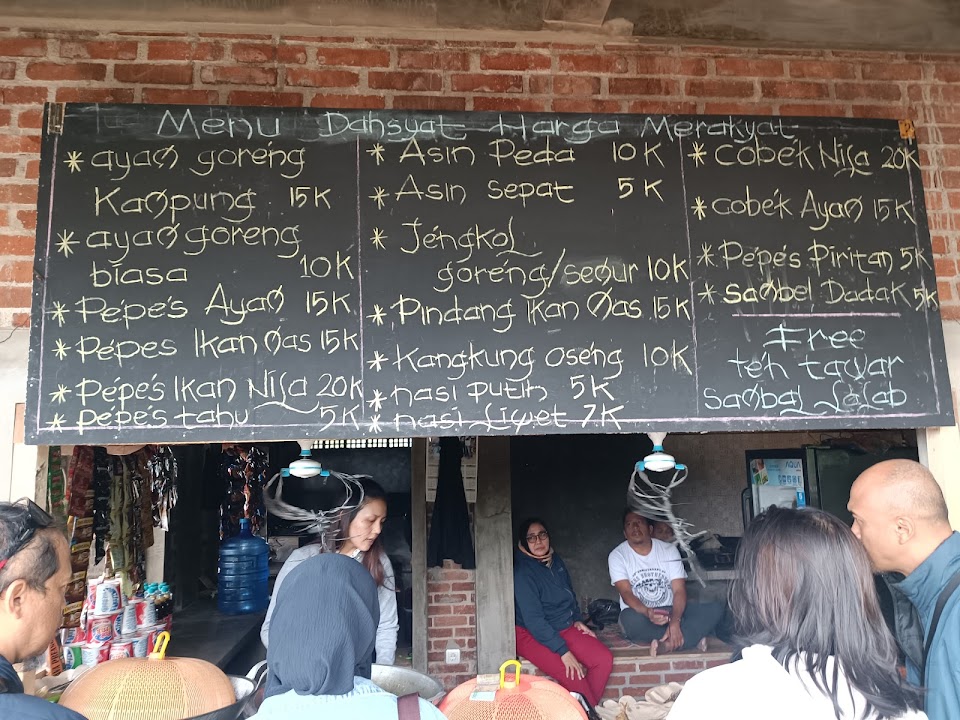 Menu Dahsyat Harga Merakyat
* ayam goreng
Kampung 15K
* ayam goreng
biasa 10K
* Pepes Ayam 15K
* Pepes Ikan mas 15K
* Pepes Ikan Nila 20K
* Pepes tahu 5K
* Asin Peda 10K
* Asin sepat 5K
* Jengkol
goreng/semur 10K
* Pindang Ikan mas 15K
* Kangkung Oseng 10K
* nasi putih 5K
* nasi Liwet 7K
* cobek Nila 20K
* cobek Ayam 15K
* Pepes Piritan 5K
* sambel Dadak 5K
Free
teh tawar
Sambal Lalab
AQUA